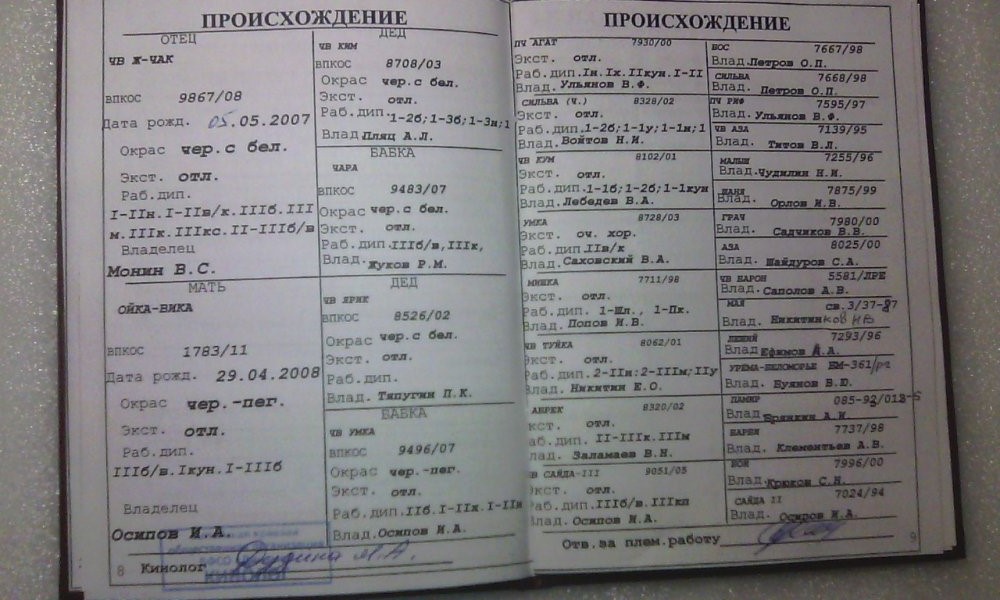 ПРОИСХОЖДЕНИЕ
ОТЕЦ
ЧВ Ж-ЧАК
ВПКОС 9867/08
Дата рожд. 05.05.2007
Окрас чер.с бел.
Экст. отл.
Раб.дип.
I-IIн.I-IIв/к.IIIб.III
м.IIIк.IIIкс.II-IIIб/в
Владелец
Монин В.С.
МАТЬ
ОЙКА-ВИКА
ВПКОС 1783/11
Дата рожд. 29.04.2008
Окрас чер.-пег.
Экст. отл.
Раб.дип.
IIIб/в.Iкун.I-IIIб
Владелец
Осипов И.А.
8 Кинолог
КИНОЛОГ
ДЕД
ЧВ КИМ
ВПКОС 8708/03
Окрас чер.с бел.
Экст. отл.
Раб.дип.1-2б;1-3б;1-3н;1
Влад Пляц А.Л.
БАБКА
ЧАРА
ВПКОС 9483/07
Окрас чер.с бел.
Экст. отл.
Раб.дип.IIIб/в,IIIк,
Влад. Жуков Р.М.
ДЕД
ЧВ ЯРИК
ВПКОС 8526/02
Окрас чер.с бел.
Экст. отл.
Раб.дип.
Влад. Тяпугин П.К.
БАБКА
ЧВ УМКА
ВПКОС 9496/07
Окрас чер.-пег.
Экст. отл.
Раб.дип.IIб.I-IIх.I-IIн
Влад.Осипов И.А.
ПРОИСХОЖДЕНИЕ
ПЧ АГАТ 7930/00
Экст. отл.
Раб.дип.Iн.Iх.IIкун.I-II
Влад. Ульянов В.Ф.
СИЛЬВА (Ч.) 8328/02
Экст. отл.
Раб.дип.1-2б;1-1у;1-1н;1
Влад. Войтов Н.И.
ЧВ КУМ 8102/01
Экст. отл.
Раб.дип.1-1б;1-2б;1-1кун
Влад.Лебедев В.А.
УМКА 8728/03
Экст. оч. хор.
Раб.дип.IIв/к
Влад.Саховский В.А.
МИШКА 7711/98
Экст. отл.
Раб.дип. 1-Шл., 1-Пх.
Влад. Попов И.В.
ЧВ ТУЙКА 8062/01
Экст. отл.
Раб.дип.2-IIн:2-IIIм,IIу
Влад. Никитин Е.О.
АБРЕК 8320/02
кст. отл.
аб.дип. II-IIIк.IIIм
Влад. Заламаев В.Н.
ЧВ САЙДА-III 9051/05
Экст. отл.
Раб.дип.IIIб/в.IIIкп
Влад. Осипов И.А.
БОС 7667/98
Влад.Петров О.П.
СИЛЬВА 7668/98
Влад. Петров О.П.
ПЧ РИФ 7595/97
Влад.Ульянов В.Ф.
ЧВ АЗА 7139/95
Влад. Титов В.Л.
МАЛЫШ 7255/96
Влад.Чудилин Н.И.
7875/99
Влад. Орлов И.В.
ГРАЧ 7980/00
Влад. Садчиков В.В.
АЗА 8025/00
Влад. Шайдуров С.А.
ЧВ БАРОН 5581/ЛРЕ
Влад.Саполов А.В.
МАЯ св.3/37-87
Влад. Никитинков НВ
7293/96
Влад Ефимов А.А.
УРЕМА-БЕЛОМОРЬЕ ВМ-361/рг
Влад. Буянов В.Ю.
ПАМИР
Влад
7737/98
Влад. Клементьев А.В.
7996/00
Влад.Крюков С.Н.
САЙДА II 7024/94
Влад. Осипов И.А.
Отв.за плем.работу
9